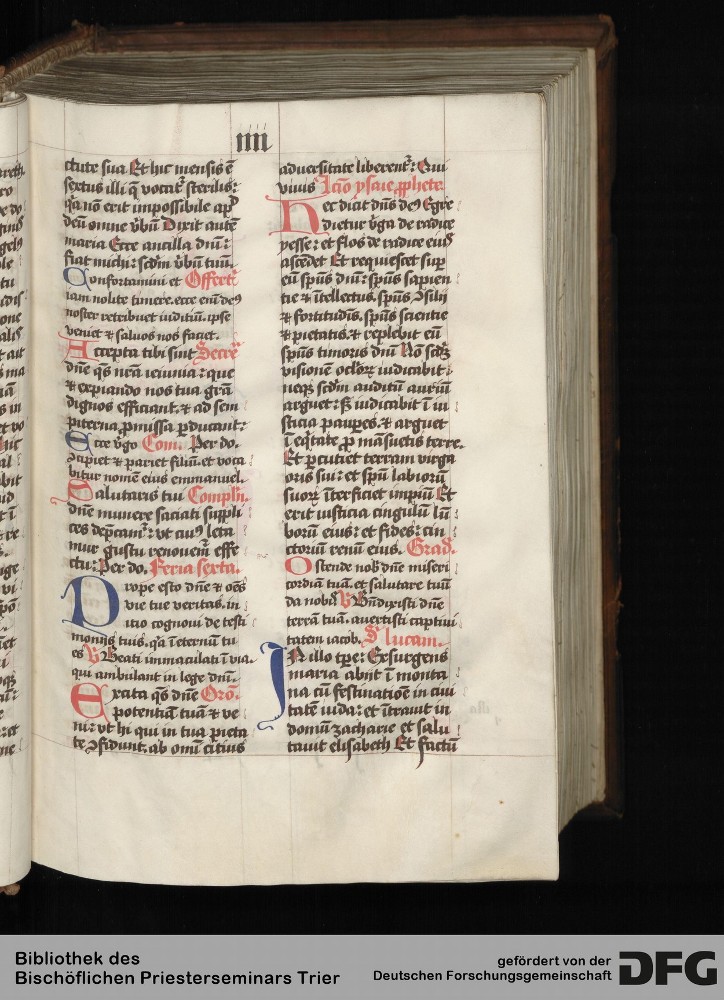 iiii
ctute sua Et hic mensis ē
sextus illi q̄ vocat᷑ sterilis:
q̇a nō erit impossibile apd̓
deū omne v̓bū Dixit autē
maria Ecce ancilla dn̄i:
fiat michi: scd̄m v̓bū tuū.
Confortamini et Offert᷑
iam nolite timere. ecce eni de9
noster retribuet iuditiū. ip̄se
veniet ⁊ saluos nos faciet.
Accepta tibi sint Secre᷑
dn̄e q̄s nr̄a ieiunia: que
⁊ expiando nos tua grā
dignos efficiant. ⁊ ad sem
piterna ꝓmissa ꝑducant:
Ecce v̓go Com. Per do.
ↄcipiet ⁊ pariet filiū. et voca
bitur nomē eius emmanuel.
Salutaris tui Compln̄.
dn̄e munere saciati suppli
ces dep̄cam᷑: vt cui9 leta
mur gustu renouem᷑ effe
ctu: Per do. Feria sexta.
Prope esto dn̄e ⁊ oēs
vie tue veritas. in
itio cognoui de testi
moniis tuis. q̇a ī eternū tu
es V Beati immaculati ī via.
qui ambulant in lege dn̄i.
Excita q̄s dn̄e Orō.
potentiā tuā ⁊ ve
ni: vt hi qui in tua pieta
te ↄfidunt. ab omī citius
aduersitate liberent᷑: Qui
viuis Lc̄io ysaie ꝓphete
Hec dicit dn̄s de9 Egre
dietur v̓ga de radice
yesse: et flos de radice ei9
ascēdet Et requiescet sup̄
eū spūs dn̄i: spūs sapien
tie ⁊ ītellectus. spūs ↄsilij
⁊ fortitudīs. spūs scientie
⁊ pietatis. ⁊ replebit eū
spūs timoris dn̄i Nō scd̄ꝫ
visionē oclo℞ iudicabit:
neqꝫ scd̄m auditū auriū
arguet: Sꝫ iudicabit ī iu
sticia pauꝑes. ⁊ arguet
ī eq̇tate ꝓ māsuetis terre.
Et ꝑcutiet terram virga
oris sui: et spū labiorū
suo℞ īterficiet impiū Et
erit iusticia cingulū lū
borū eius: et fides: cin
ctoriū renū eius. Grad᷑.
Ostende nob̄ dn̄e miseri
cordiā tuā. et salutare tuū
da nobis V Bn̄dixisti dn̄e
terrā tuā. auertisti captiui
tatem iacob. S. lucam.
IN illo tp̄re: Exsurgens
maria abijt ī monta
na cū festinatiōe in ciui
tatē iuda: et ītrauit in
domū zacharie et salu
tauit elisabeth Et factū
Bibliothek des
Bischöflichen Priesterseminars Trier
gefördert von der
Deutschen Forschungsgemeinschaft
DFG